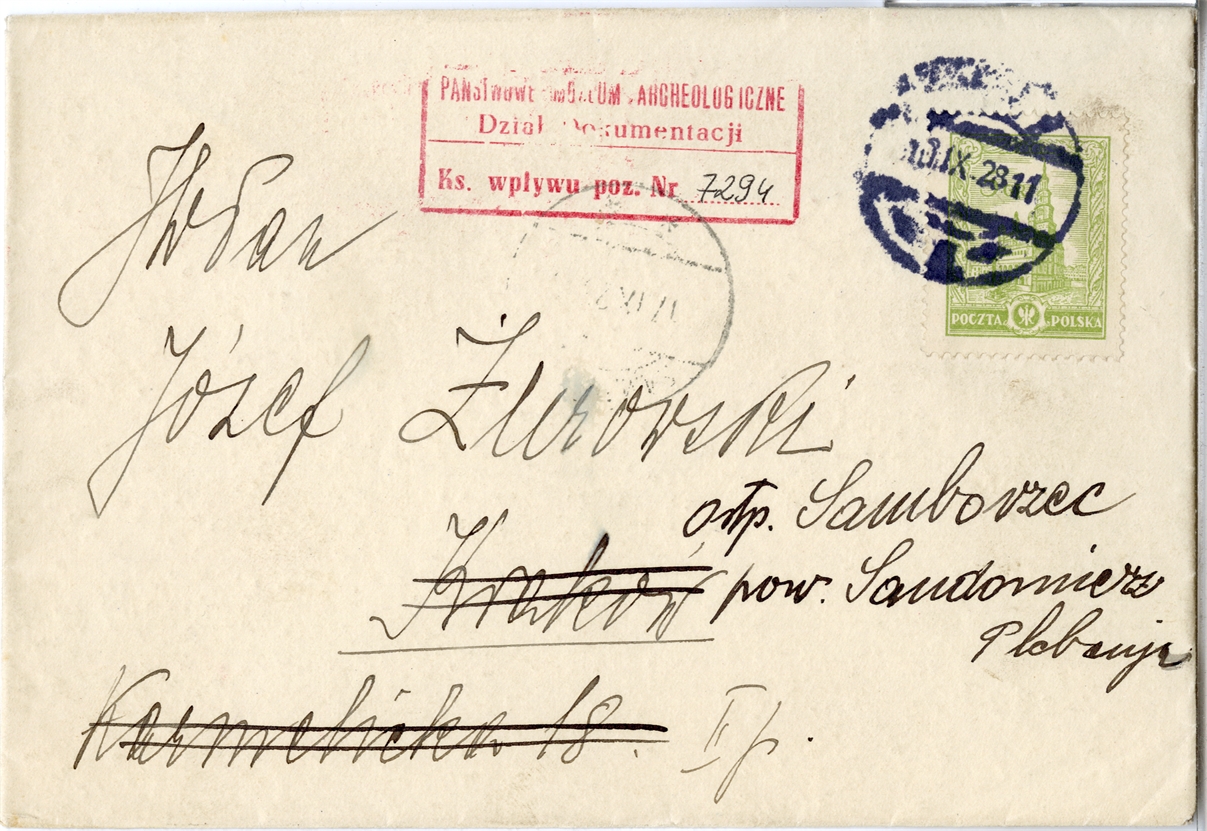 PAŃSTWOWE MUZEUM ARCHEOLOGICZNE
Dział Dokumentacji
Ks. wpływu poz. Nr 7294
IX.28 11
POCZTA POLSKA
WPan
Józef Żurowski
otp. Samborzec
Kraków pow. Sandomierz
Plebanja
Karmelicka 18. II p.